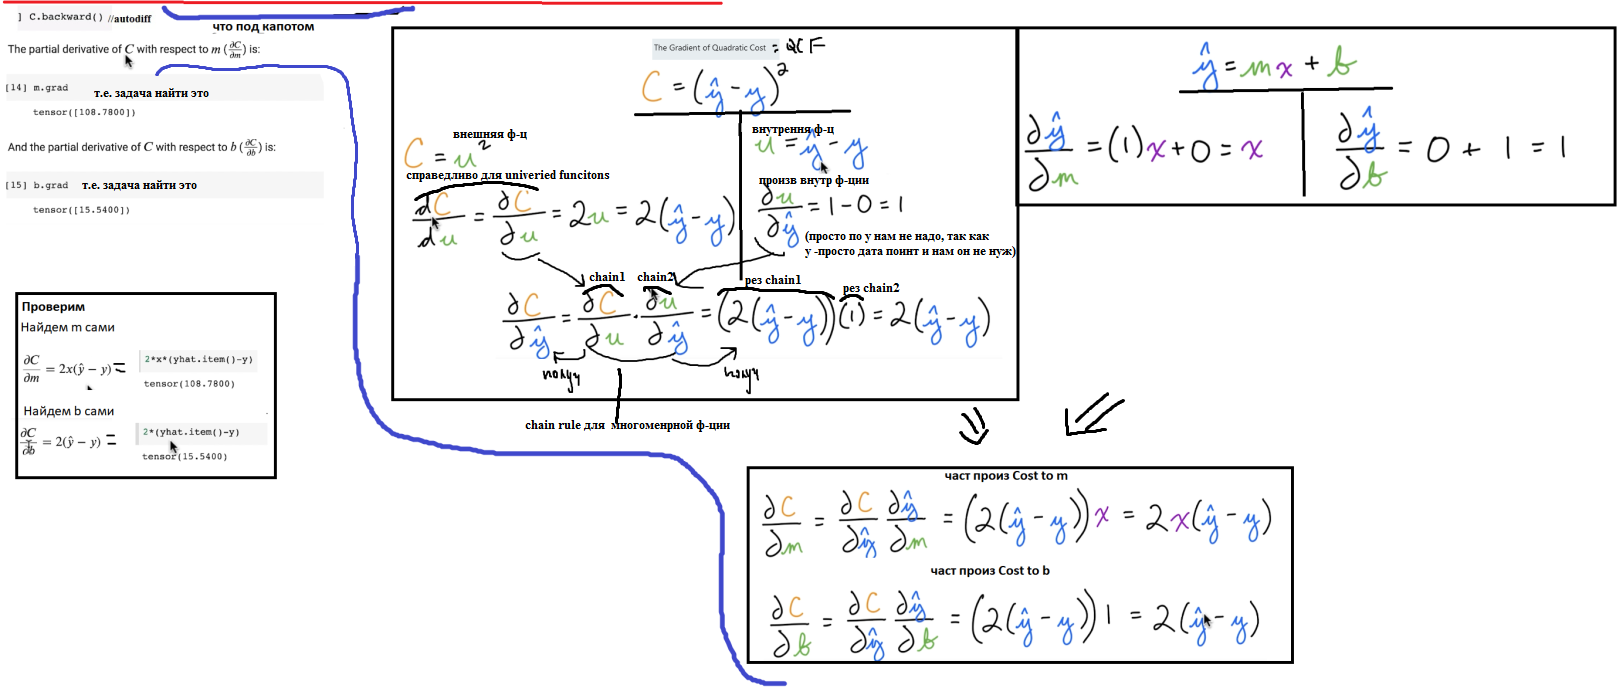 ] C.backward() //autodiff
что под капотом
The partial derivative of C with respect to m (∂C/∂m) is:
[14] m.grad т.е. задача найти это
tensor([108.7800])
And the partial derivative of C with respect to b (∂C/∂b) is:
[15] b.grad т.е. задача найти это
tensor([15.5400])
Проверим
Найдем m сами
∂C/∂m = 2x(ŷ − y) = 2*x*(yhat.item()-y)
tensor(108.7800)
Найдем b сами
∂C/∂b = 2(ŷ − y) = 2*(yhat.item()-y)
tensor(15.5400)
The Gradient of Quadratic Cost = QCF
C = (ŷ - y)²
внешняя ф-ц
C = u²
справедливо для univeried funcitons
dC/du = ∂C/∂u = 2u = 2(ŷ - y)
внутрення ф-ц
u = ŷ - y
произв внутр ф-ции
∂u/∂ŷ = 1 - 0 = 1
(просто по у нам не надо, так как
у -просто дата поинт и нам он не нуж)
chain1 chain2 рез chain1 рез chain2
∂C/∂ŷ = ∂C/∂u · ∂u/∂ŷ = (2(ŷ - y))(1) = 2(ŷ - y)
получ получ
chain rule для многоменрной ф-ции
ŷ = mx + b
∂ŷ/∂m = (1)x + 0 = x
∂ŷ/∂b = 0 + 1 = 1
част произ Cost to m
∂C/∂m = ∂C/∂ŷ ∂ŷ/∂m = (2(ŷ - y))x = 2x(ŷ - y)
част произ Cost to b
∂C/∂b = ∂C/∂ŷ ∂ŷ/∂b = (2(ŷ - y))1 = 2(ŷ - y)